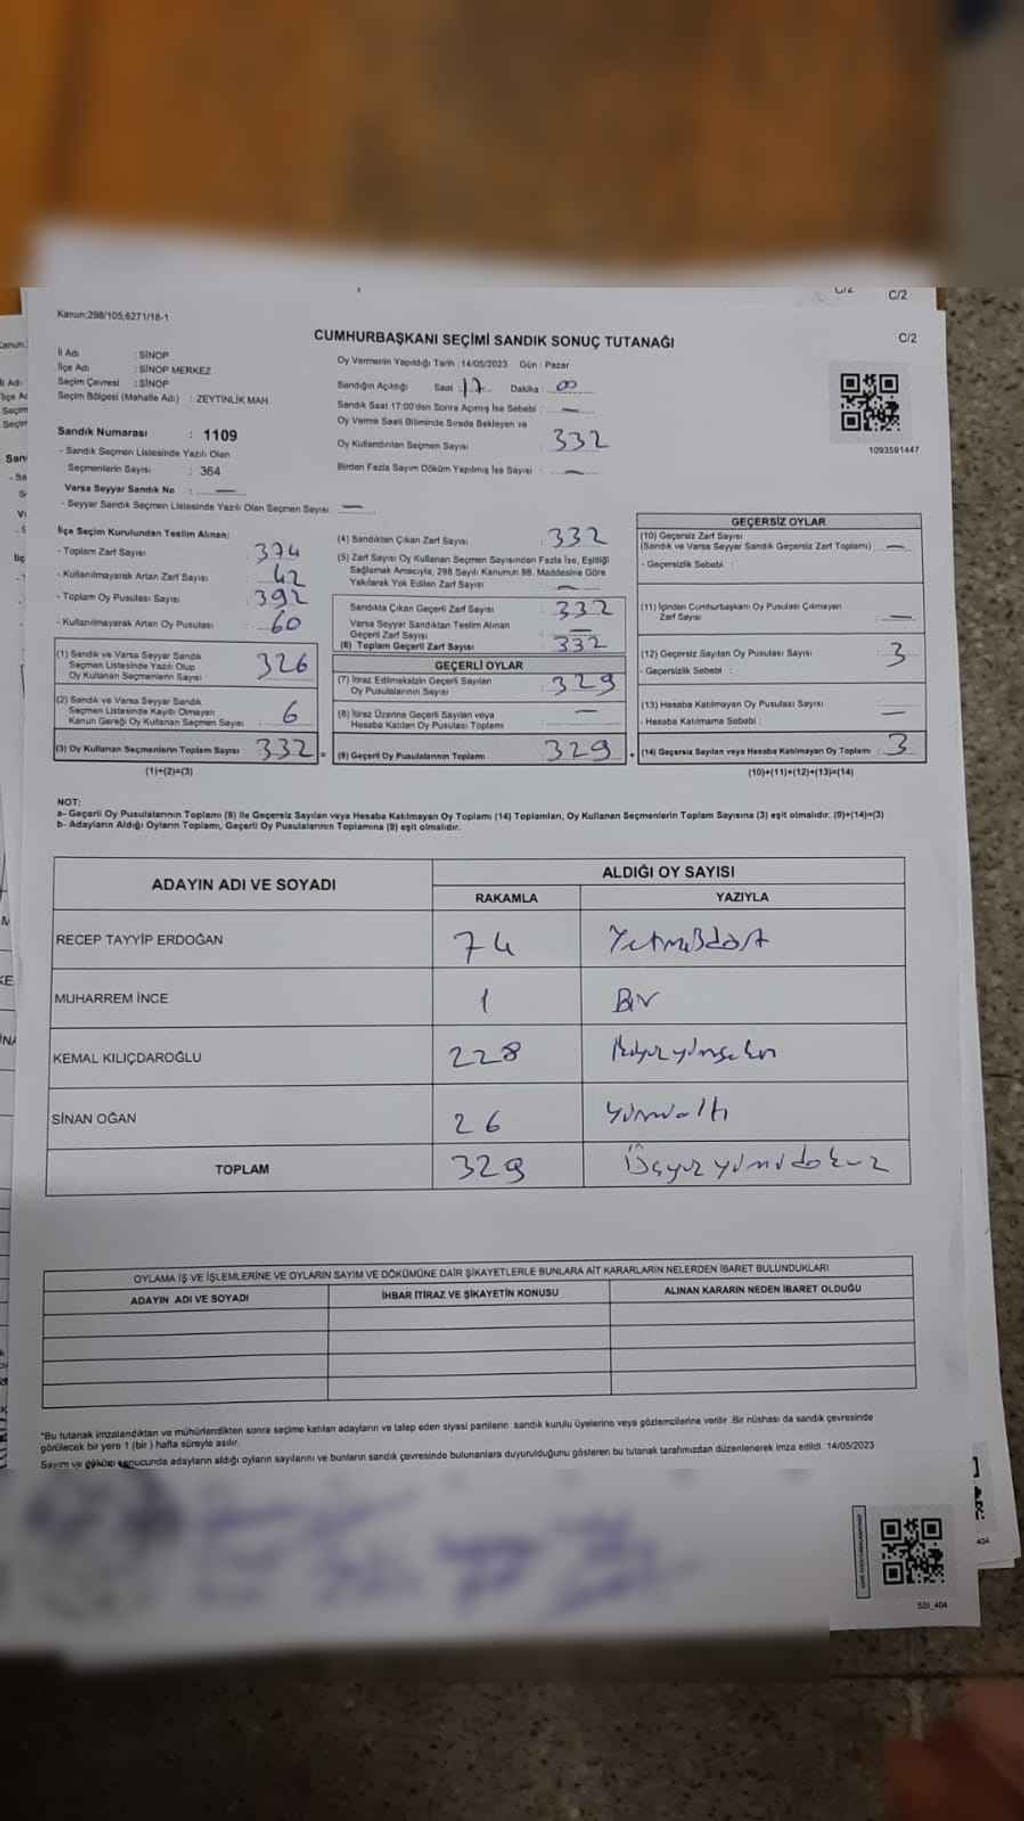 C/2
Kanun;298/105,6271/18-1
C/2
CUMHURBAŞKANI SEÇİMİ SANDIK SONUÇ TUTANAĞI
İl Adı : SİNOP
İlçe Adı : SİNOP MERKEZ
Seçim Çevresi : SİNOP
Seçim Bölgesi (Mahalle Adı) : ZEYTİNLİK MAH.
Sandık Numarası : 1109
- Sandık Seçmen Listesinde Yazılı Olan
Seçmenlerin Sayısı : 364
Varsa Seyyar Sandık No : —
- Seyyar Sandık Seçmen Listesinde Yazılı Olan Seçmen Sayısı : —
Oy Vermenin Yapıldığı Tarih : 14/05/2023 Gün : Pazar
Sandığın Açıldığı Saat : 17 Dakika : 00
Sandık Saat 17:00'den Sonra Açımış İse Sebebi : —
Oy Verme Saati Bitiminde Sırada Bekleyen ve
Oy Kullandırılan Seçmen Sayısı : 332
Birden Fazla Sayım Döküm Yapılmış İse Sayısı : —
1093591447
İlçe Seçim Kurulundan Teslim Alınan:
- Toplam Zarf Sayısı : 374
- Kullanılmayarak Artan Zarf Sayısı : 42
- Toplam Oy Pusulası Sayısı : 392
- Kullanılmayarak Artan Oy Pusulası : 60
(1) Sandık ve Varsa Seyyar Sandık
Seçmen Listesinde Yazılı Olup
Oy Kullanan Seçmenlerin Sayısı 326
(2) Sandık ve Varsa Seyyar Sandık
Seçmen Listesinde Kayıtlı Olmayan
Kanun Gereği Oy Kullanan Seçmen Sayısı 6
(3) Oy Kullanan Seçmenlerin Toplam Sayısı 332 =
(1)+(2)=(3)
(4) Sandıktan Çıkan Zarf Sayısı : 332
(5) Zarf Sayısı Oy Kullanan Seçmen Sayısından Fazla İse, Eşitliği
Sağlamak Amacıyla, 298 Sayılı Kanunun 98. Maddesine Göre
Yakılarak Yok Edilen Zarf Sayısı : —
Sandıkta Çıkan Geçerli Zarf Sayısı : 332
Varsa Seyyar Sandıktan Teslim Alınan
Geçerli Zarf Sayısı : —
(6) Toplam Geçerli Zarf Sayısı : 332
GEÇERLİ OYLAR
(7) İtiraz Edilmeksizin Geçerli Sayılan
Oy Pusulalarının Sayısı : 329
(8) İtiraz Üzerine Geçerli Sayılan veya
Hesaba Katılan Oy Pusulası Toplamı : —
(9) Geçerli Oy Pusulalarının Toplamı : 329 +
GEÇERSİZ OYLAR
(10) Geçersiz Zarf Sayısı
(Sandık ve Varsa Seyyar Sandık Geçersiz Zarf Toplamı) : —
- Geçersizlik Sebebi :
(11) İçinden Cumhurbaşkanı Oy Pusulası Çıkmayan
Zarf Sayısı : —
(12) Geçersiz Sayılan Oy Pusulası Sayısı : 3
- Geçersizlik Sebebi :
(13) Hesaba Katılmayan Oy Pusulası Sayısı : —
- Hesaba Katılmama Sebebi :
(14) Geçersiz Sayılan veya Hesaba Katılmayan Oy Toplamı : 3
(10)+(11)+(12)+(13)=(14)
NOT:
a- Geçerli Oy Pusulalarının Toplamı (9) ile Geçersiz Sayılan veya Hesaba Katılmayan Oy Toplamı (14) Toplamları, Oy Kullanan Seçmenlerin Toplam Sayısına (3) eşit olmalıdır. (9)+(14)=(3)
b- Adayların Aldığı Oyların Toplamı, Geçerli Oy Pusulalarının Toplamına (9) eşit olmalıdır.
ADAYIN ADI VE SOYADI
ALDIĞI OY SAYISI
RAKAMLA YAZIYLA
RECEP TAYYİP ERDOĞAN 74 Yetmişdört
MUHARREM İNCE 1 Bir
KEMAL KILIÇDAROĞLU 228 İkiyüzyirmisekiz
SİNAN OĞAN 26 Yirmialtı
TOPLAM 329 Üçyüzyirmidokuz
OYLAMA İŞ VE İŞLEMLERİNE VE OYLARIN SAYIM VE DÖKÜMÜNE DAİR ŞİKAYETLERLE BUNLARA AİT KARARLARIN NELERDEN İBARET BULUNDUKLARI
ADAYIN ADI VE SOYADI İHBAR İTİRAZ VE ŞİKAYETİN KONUSU ALINAN KARARIN NEDEN İBARET OLDUĞU
"Bu tutanak imzalandıktan ve mühürlendikten sonra seçime katılan adayların ve talep eden siyasi partilerin sandık kurulu üyelerine veya gözlemcilerine verilir. Bir nüshası da sandık çevresinde
görülecek bir yere 1 (bir) hafta süreyle asılır.
Sayım ve döküm sonucunda adayların aldığı oyların sayılarını ve bunların sandık çevresinde bulunanlara duyurulduğunu gösteren bu tutanak tarafımızdan düzenlenerek imza edildi. 14/05/2023
SSI_404